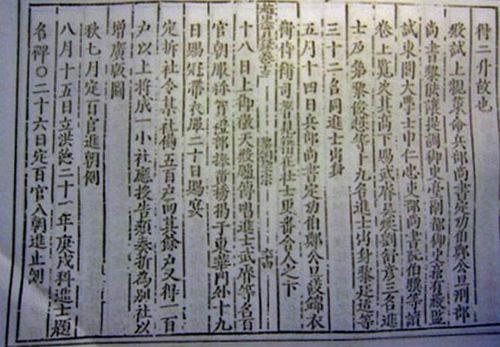 得二升故也
殿試上親策命兵部尚書定功伯鄭公旦刑部
尚書黎能讓提調御史臺副都御史郭有嚴監
試東閣大學士申仁忠吏部尚書阮伯驥等讀
卷上覽次其高下賜武席吳煥劉舒彥三名進
士及第黎俊懋等十九名進士出身黎挺等
三十二名同進士出身
五月十四日兵部尚書定功伯鄭公旦設錦衣
衛侍衛司見指壯士更番令人之下
十八日上御敬天殿臚傳唱進士武席等名百
官朝服拜賀禮部捧黃榜揭于東華門外十九
日賜冠帶衣服二十日賜宴
定拆社令某社備五百户而其餘户又得一百
户以上將成一小社應按告類奏折為別社以
增廣版圖
秋七月定百官進朝例
八月十五日立洪德二十一年庚戌科進士題
名碑〇二十六日定百官入朝進止例